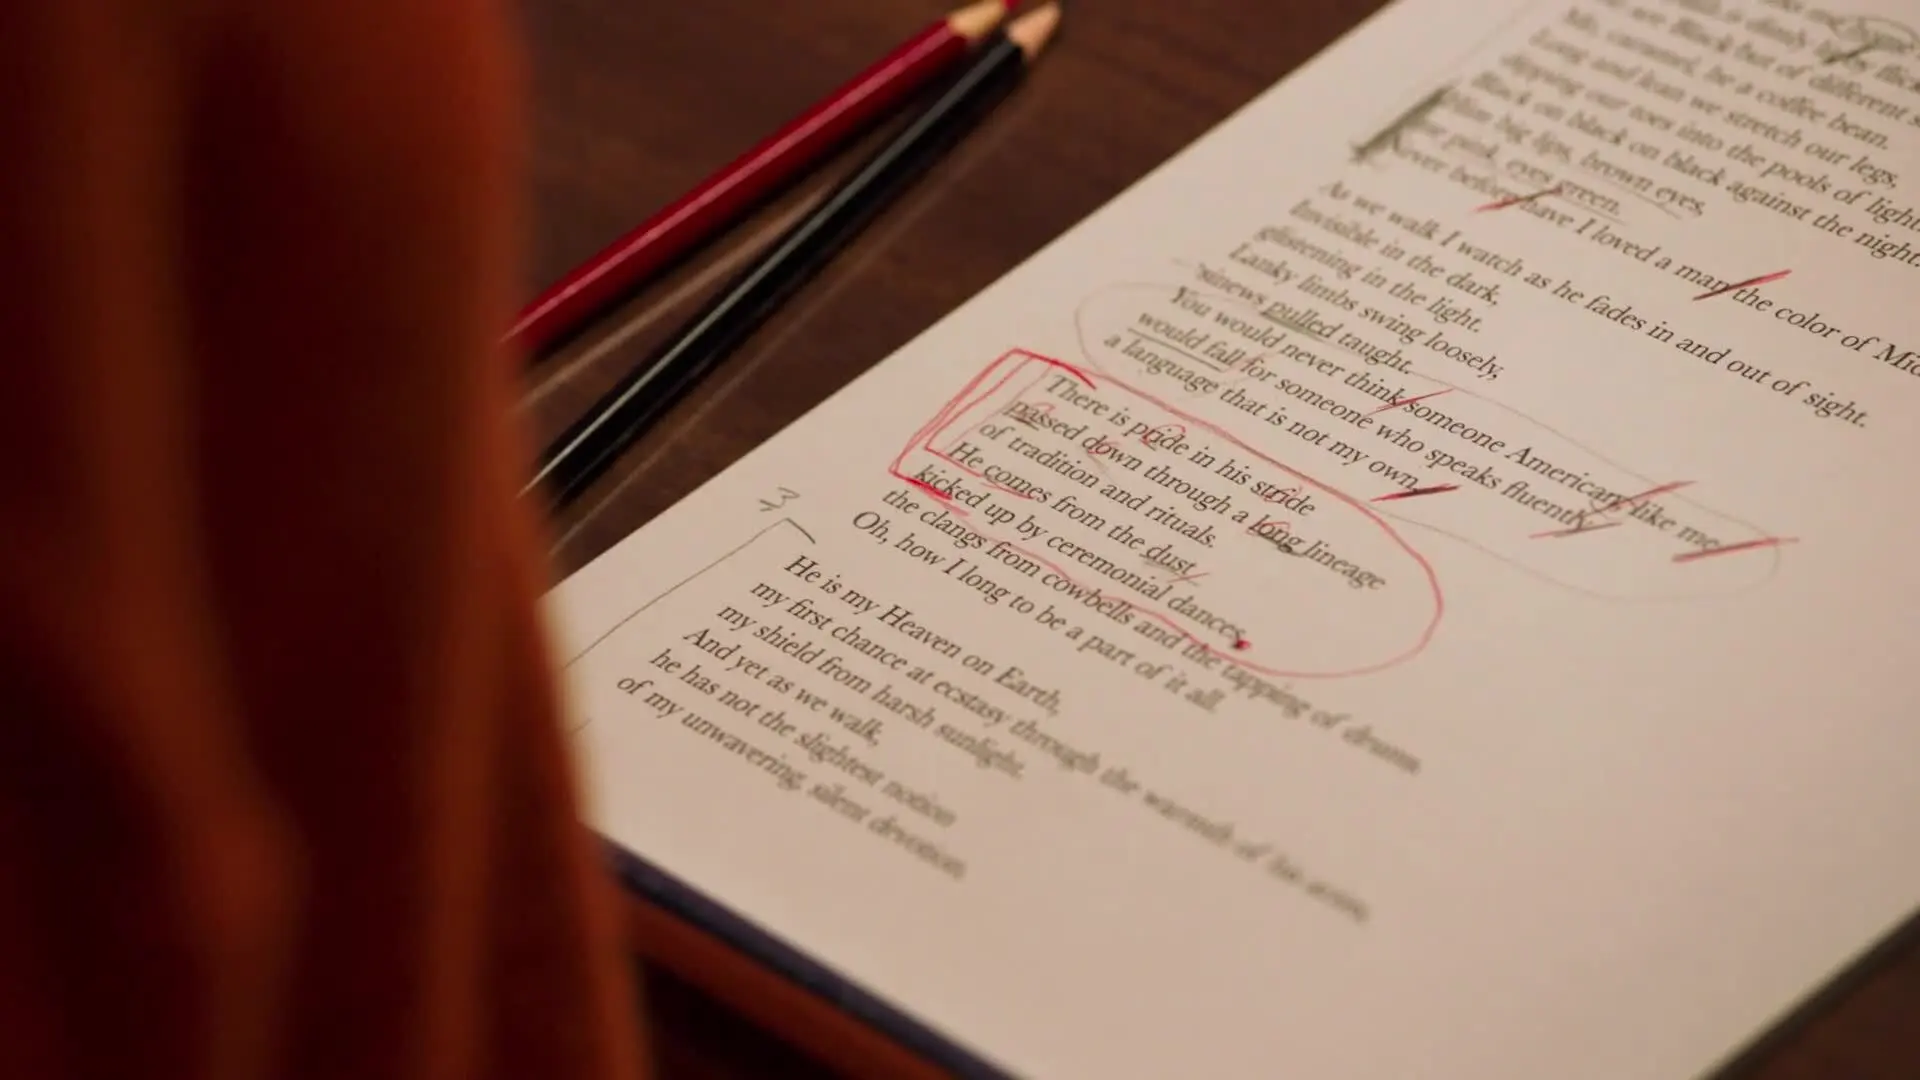 are Black but of different s
Me, caramel, he a coffee bean.
Long and lean we stretch our legs,
dipping our toes into the pools of light.
Black on black on black against the night.
big lips, brown eyes,
pink, eyes green.
Never before have I loved a man the color of Mid
As we walk I watch as he fades in and out of sight.
Invisible in the dark,
glistening in the light.
Lanky limbs swing loosely,
sinews pulled taught.
You would never think someone American like me
would fall for someone who speaks fluently
a language that is not my own.
There is pride in his stride
passed down through a long lineage
of tradition and rituals.
He comes from the dust
kicked up by ceremonial dances,
the clangs from cowbells and the tapping of drums.
Oh, how I long to be a part of it all.
3
He is my Heaven on Earth,
my first chance at ecstasy through the warmth of his arms,
my shield from harsh sunlight.
And yet as we walk,
he has not the slightest notion
of my unwavering, silent devotion.